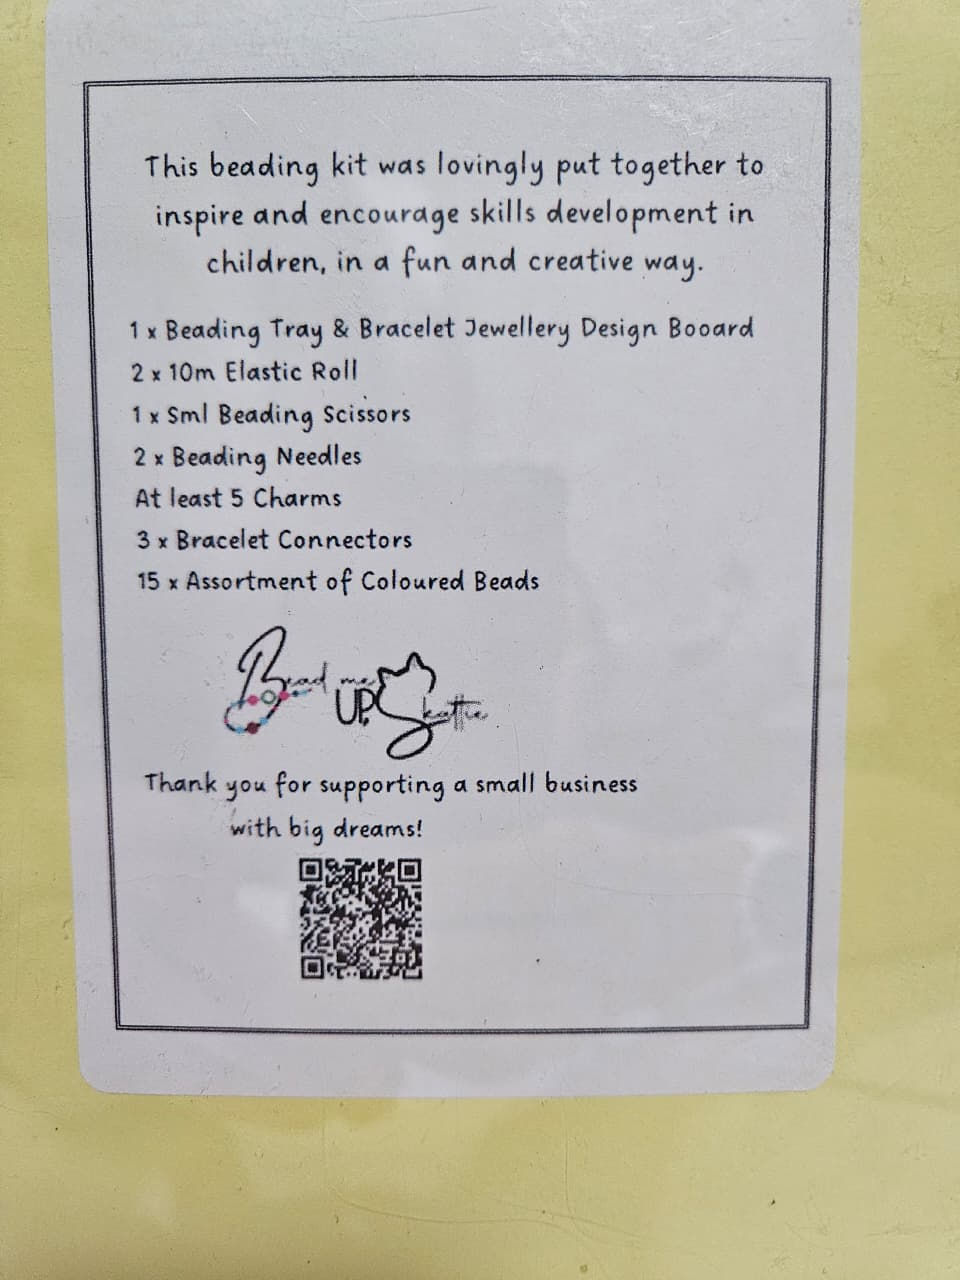 This beading kit was lovingly put together to
inspire and encourage skills development in
children, in a fun and creative way.
1 x Beading Tray & Bracelet Jewellery Design Booard
2 x 10m Elastic Roll
1 x Sml Beading Scissors
2 x Beading Needles
At least 5 Charms
3 x Bracelet Connectors
15 x Assortment of Coloured Beads
Bead me UP Skattie
Thank you for supporting a small business
with big dreams!